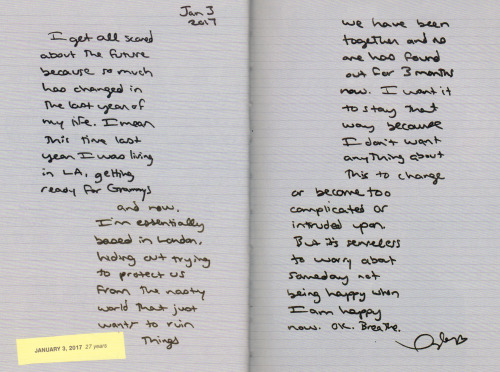 Jan 3
2017
I get all scared
about the future
because so much
has changed in
the last year of
my life. I mean
this time last
year I was living
in LA, getting
ready for Grammys
and now.
I'm essentially
based in London,
hiding out trying
to protect us
from the nasty
world that just
wants to ruin
things
JANUARY 3, 2017 27 years
we have been
together and no
one has found
out for 3 months
now. I want it
to stay that
way because
I don't want
anything about
this to change
or become too
complicated or
intruded upon.
But it's senseless
to worry about
someday not
being happy when
I am happy
now. OK. Breathe.